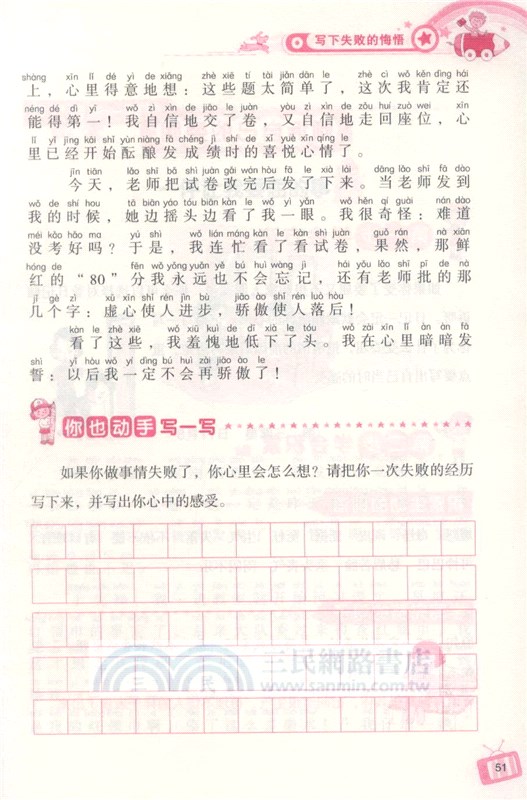 写下失败的悔悟
shàng xīn lǐ dé yì de xiǎng zhè xiē tí tài jiǎn dān le zhè cì wǒ kěn dìng hái
上，心里得意地想：这些题太简单了，这次我肯定还
néng dé dì yī wǒ zì xìn de jiāo le juàn yòu zì xìn de zǒu huí zuò wèi xīn
能得第一！我自信地交了卷，又自信地走回座位，心
lǐ yǐ jīng kāi shǐ yùn niàng fā chéng jì shí de xǐ yuè xīn qíng le
里已经开始酝酿发成绩时的喜悦心情了。
jīn tiān lǎo shī bǎ shì juàn gǎi wán hòu fā le xià lái dāng lǎo shī fā dào
今天，老师把试卷改完后发了下来。当老师发到
wǒ de shí hou tā biān yáo tóu biān kàn le wǒ yì yǎn wǒ hěn qí guài nán dào
我的时候，她边摇头边看了我一眼。我很奇怪：难道
méi kǎo hǎo ma yú shì wǒ lián máng kàn le kàn shì juàn guǒ rán nà xiān
没考好吗？于是，我连忙看了看试卷，果然，那鲜
hóng de fēn wǒ yǒng yuǎn yě bú huì wàng jì hái yǒu lǎo shī pī de nà
红的“80”分我永远也不会忘记，还有老师批的那
jǐ gè zì xū xīn shǐ rén jìn bù jiāo ào shǐ rén luò hòu
几个字：虚心使人进步，骄傲使人落后！
kàn le zhè xiē wǒ xiū kuì de dī xià le tóu wǒ zài xīn lǐ àn àn fā
看了这些，我羞愧地低下了头。我在心里暗暗发
shì yǐ hòu wǒ yí dìng bú huì zài jiāo ào le
誓：以后我一定不会再骄傲了！
你也动手写一写
如果你做事情失败了，你心里会怎么想？请把你一次失败的经历
写下来，并写出你心中的感受。
三民網路書店
三 民
www.sanmin.com.tw
51